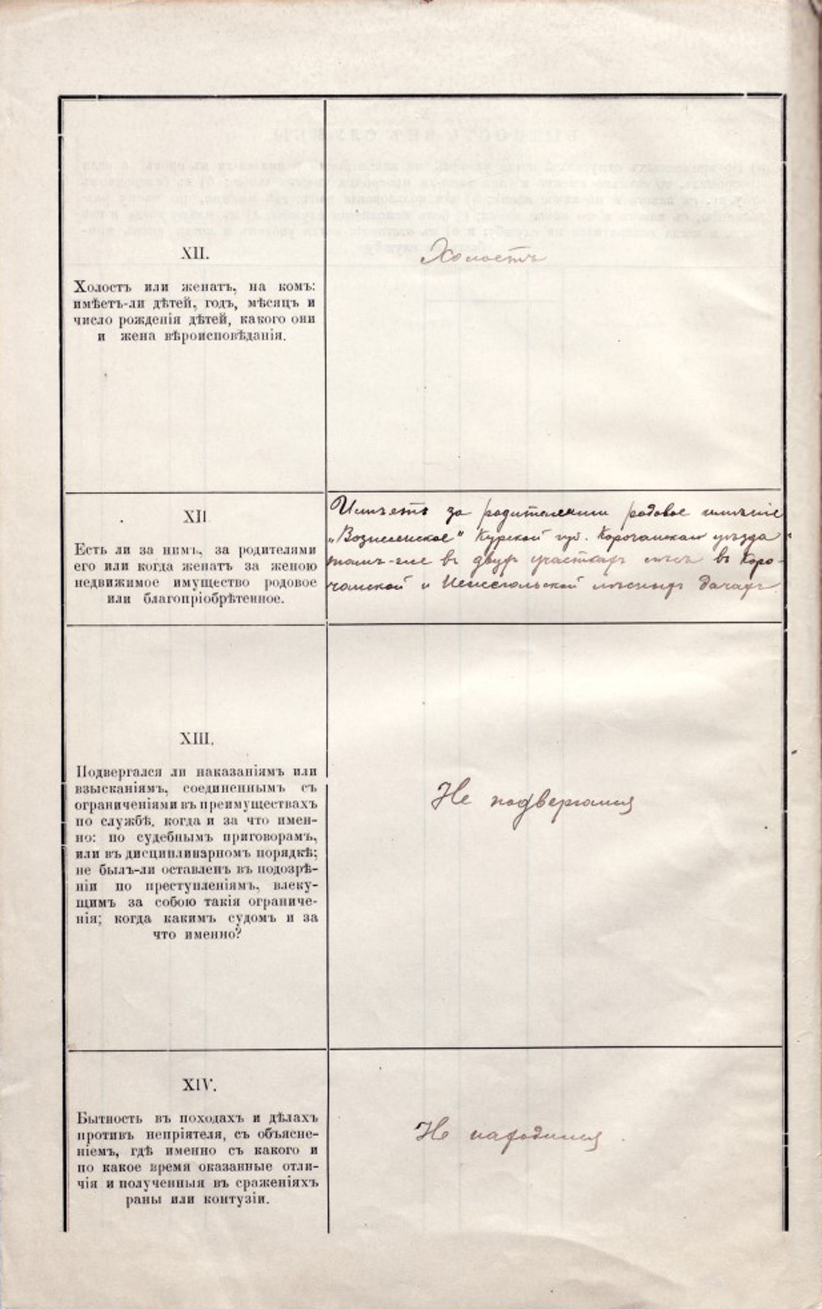 XII.
Холостъ или женатъ, на комъ:
имѣетъ-ли дѣтей, годъ, мѣсяцъ и
число рожденія дѣтей, какого они
и жена вѣроисповѣданія.
Холостъ
XII
Есть ли за нимъ, за родителями
его или когда женатъ за женою
недвижимое имущество родовое
или благопріобрѣтенное.
Имѣетъ за родителями родовое имѣніе
„Вознесенское" Курской губ. Корочанскаго уѣзда
тамъ-же въ двухъ участкахъ лѣсъ въ Коро-
чанской и лѣсныхъ дачахъ
XIII.
Подвергался ли наказаніямъ или
взысканіямъ, соединеннымъ съ
ограниченіями въ преимуществахъ
по службѣ, когда и за что имен-
но: по судебнымъ приговорамъ,
или въ дисциплинарномъ порядкѣ;
не былъ-ли оставленъ въ подозрѣ-
ніи по преступленіямъ, влеку-
щимъ за собою такія ограниче-
нія; когда какимъ судомъ и за
что именно?
Не подвергался
XIV.
Бытность въ походахъ и дѣлахъ
противъ непріятеля, съ объясне-
ніемъ, гдѣ именно съ какого и
по какое время оказанные отли-
чія и полученныя въ сраженіяхъ
раны или контузіи.
Не находился